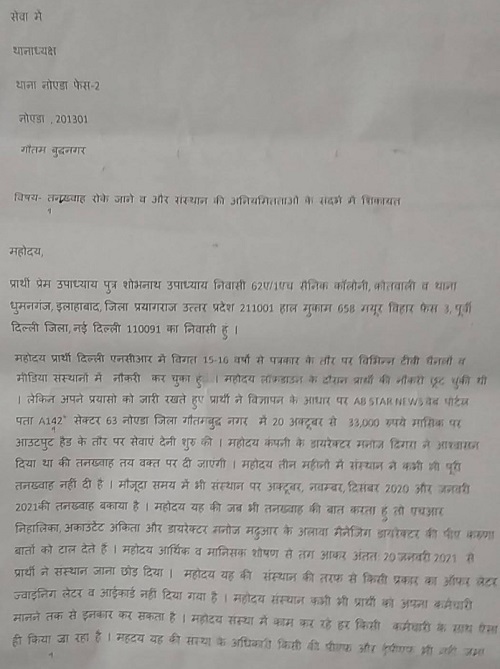 सेवा में
थानाध्यक्ष
थाना नोएडा फेस-2
नोएडा , 201301
गौतम बुद्धनगर
विषय- तनख्वाह रोके जाने व और संस्थान की अनियमितताओ के संदर्भ में शिकायत
महोदय,
प्रार्थी प्रेम उपाध्याय पुत्र शोभनाथ उपाध्याय निवासी 62ए/1एच सैनिक कॉलोनी,कोतवाली व थाना
धुमनगंज,इलाहाबाद,जिला प्रयागराज उत्तर प्रदेश 211001 हाल मुकाम 658 मयूर विहार फेस 3,पूर्वी
दिल्ली जिला,नई दिल्ली 110091 का निवासी हूं ।
महोदय प्रार्थी दिल्ली एनसीआर में विगत 15-16 वर्षो से पत्रकार के तौर पर विभिन्न टीवी चैनलो व
मीडिया संस्थानों में नौकरी कर चुका हूं । महोदय लॉकडाउन के दौरान प्रार्थी की नौकरी छूट चुकी थी
। लेकिन अपने प्रयासो को जारी रखते हुए प्रार्थी ने विज्ञापन के आधार पर AB STAR NEWS वेब पोर्टल
पता A142 सेक्टर 63 नोएडा जिला गौतमबुद्ध नगर में 20 अक्टूबर से 33,000 रुपये मासिक पर
आउटपुट हैड के तौर पर सेवाएं देनी शुरु की । महोदय कंपनी के डायरेक्टर मनोज दिगरा ने आश्वासन
दिया था की तनख्वाह तय वक्त पर दी जाएगी । महोदय तीन महीनों में संस्थान ने कभी भी पूरी
तनख्वाह नहीं दी है । मौजूदा समय में भी संस्थान पर अक्टूबर, नवम्बर,दिसंबर 2020 और जनवरी
2021की तनख्वाह बकाया है । महोदय यह की जब भी तनख्वाह की बात करता हूं तो एचआर
निहालिका,अकाउटेंट अंकिता और डायरेक्टर मनोज मदुआर के अलावा मैनेजिंग डायरेक्टर की पीए करुणा
बातों को टाल देते हैं । महोदय आर्थिक व मानिसक शोषण से तंग आकर अंततः 20 जनवरी 2021 से
प्रार्थी ने संस्थान जाना छोड़ दिया । महोदय यह की संस्थान की तरफ से किसी प्रकार का ऑफर लेटर
ज्वाइनिंग लेटर व आईकार्ड नहीं दिया गया है । महोदय संस्थान कभी भी प्रार्थी को अपना कर्मचारी
मानने तक से इनकार कर सकता है । महोदय संस्था में काम कर रहे हर किसी कर्मचारी के साथ ऐसा
ही किया जा रहा है । महदय यह की संस्था के अधिकारी किसी की पीएफ और ईपीएफ भी नहीं जमा